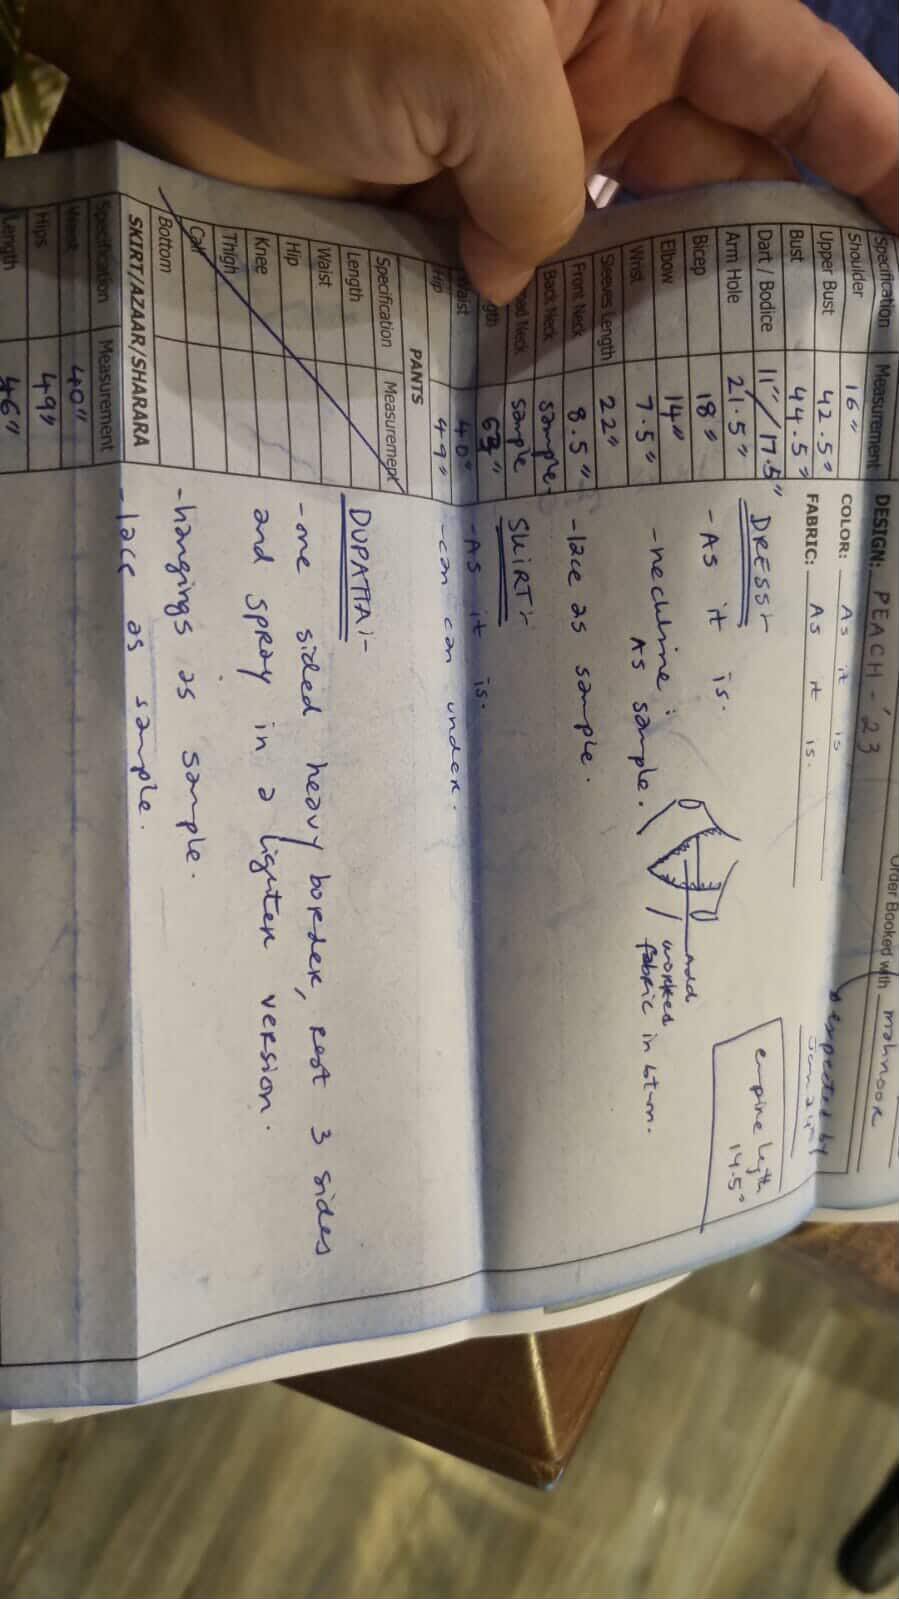 Order Booked with mahnoor
Specification Measurement
DESIGN: PEACH - '23
Shoulder 16"
COLOR: As it is
expected by
Upper Bust 42.5"
FABRIC: As it is.
Bust 44.5"
Dart / Bodice 11"/17.5"
Arm Hole 21.5"
Bicep 18"
Elbow 14"
Wrist 7.5"
Sleeves Length 22"
Front Neck 8.5"
Back Neck sample
Neck sample
Waist 40"
Hip 49"
DRESS:-
- As it is.
empire
14.5"
- neckline:
As sample.
Add
worked
fabric in
- lace as sample.
SKIRT:-
- As it is.
- can can under.
PANTS
Specification Measurement
Length
Waist
Hip
Knee
Thigh
Calf
Bottom
DUPATTA:-
- one sided heavy border, rest 3 sides
and spray in a lighter version.
- hangings as sample.
- lace as sample.
SKIRT/AZAAR/SHARARA
Specification Measurement
Waist 40"
Hips 49"
Length 46"